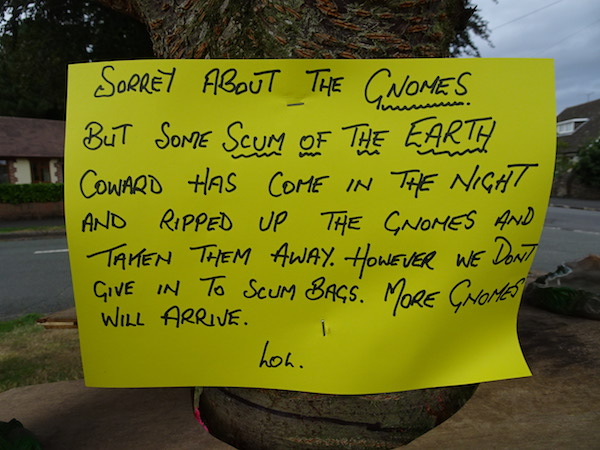 SORREY ABOUT THE GNOMES
BUT SOME SCUM OF THE EARTH
COWARD HAS COME IN THE NIGHT
AND RIPPED UP THE GNOMES AND
TAKEN THEM AWAY. HOWEVER WE DONT
GIVE IN TO SCUM BAGS. MORE GNOMES
WILL ARRIVE.
LOL.